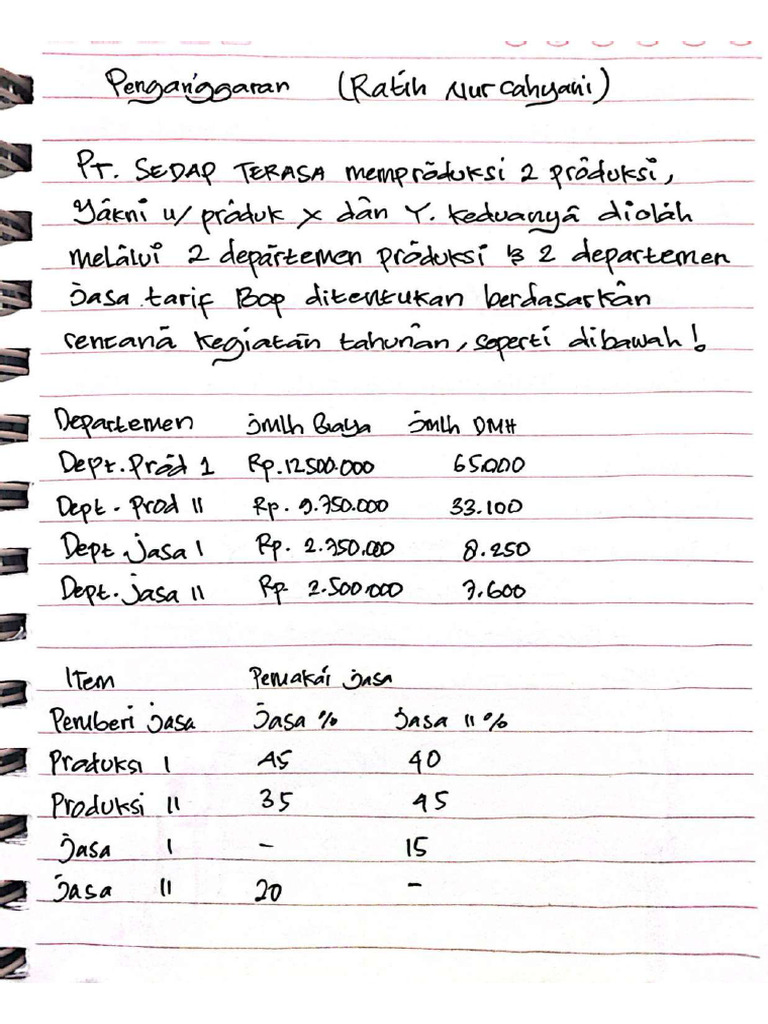 Penganggaran (Ratih Nurcahyani)
PT. SEDAP TERASA memproduksi 2 produksi,
Yakni u/ produk X dan Y. keduanya diolah
melalui 2 departemen produksi & 2 departemen
jasa tarif BOP ditentukan berdasarkan
rencana kegiatan tahunan, seperti dibawah!
Departemen jmlh Biaya jmlh DMH
Dept. Prod 1 Rp. 12500.000 65.000
Dept. Prod II Rp. 9.750.000 33.100
Dept jasa I Rp. 2.750.000 8.250
Dept. jasa II Rp. 2.500.000 7.600
Item Pemakai jasa
Pemberi jasa jasa % jasa II %
Produksi I 45 40
Produksi II 35 45
jasa I - 15
jasa II 20 -